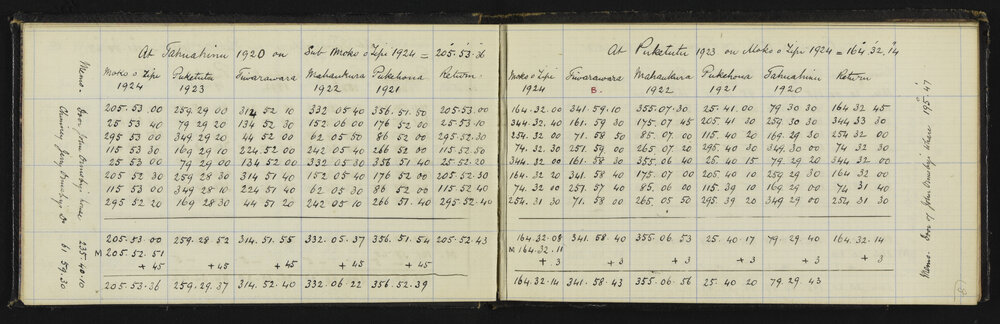 At Tahuahinu 1920 on Sub Moko o Zipi 1924 = 205°.53'.36"
Moko o Zipi Puketutu Tiwarawara Mahaukura Pukehoua Return
1924 1923 1922 1921
205.53 00 259.29 00 314 52 10 332 05 40 356.51.50 205.53 00
25 53 40 79 29 20 134 52 30 152 06 00 176 52 00 25 53 10
295 53 00 349 29 20 44 52 00 62 05 50 86 52 00 295 52.30
115 53 30 169 29 10 224.52 00 242 05 40 266 52 00 115 52 50
25 53 00 79 29 00 134 52 00 332 05 30 356 51 40 25.52.20
205 52 30 259 28 30 314 51 40 152 05 40 176 52 00 205.52.30
115 53 00 349 28 10 224 51 40 62 05 30 86 52 00 115 52 40
295 52 20 169 28 30 44 51 20 242 05 10 266 51.40 295 52.40
205.53 00 259.28.52 314.51.55 332.05.37 356.51.54 205.52.43
M 205.52.51
+ 45 + 45 + 45 + 45 + 45
205.53.36 259.29.37 314.52.40 332.06.22 356.52.39
Memo.
235.40.10
61.59.30
At Puketutu 1923 on Moko o Zipi 1924 = 164°.32'.14"
Moko o Zipi Tiwarawara Mahaukura Pukehoua Tahuahinu Return
1924 B. 1922 1921 1920
164.32.00 341.59.10 355.07.30 25.41.00 79 30 30 164 32 45
344.32.40 161.59 30 175.07 45 205.41 30 259 30 30 344 33 30
254.32 00 71.58 50 85.07.00 115.40 20 169.29 30 254 32 00
74.32.30 251.59 00 265 07 20 295.40 30 349.30 00 74 32 30
344.32 00 161.58 30 355.06 40 25.40 15 79.29 20 344.32 00
164.32 20 341.58 40 175.07 00 205 40 10 259 29 30 164 32 00
74.32 00 251.57 40 85.06 00 115.39 10 169 29 00 74 31 40
254.31 30 71.58 00 265.05 50 295.39 20 349 29 00 254 31 30
164.32.08 341.58.40 355.06.53 25.40.17 79.29.40 164.32.14
M 164.32.11
+ 3 + 3 + 3 + 3 + 3 + 3
164.32.14 341.58.43 355.06.56 25.40 20 79.29.43
Memo. 195°.47'
8